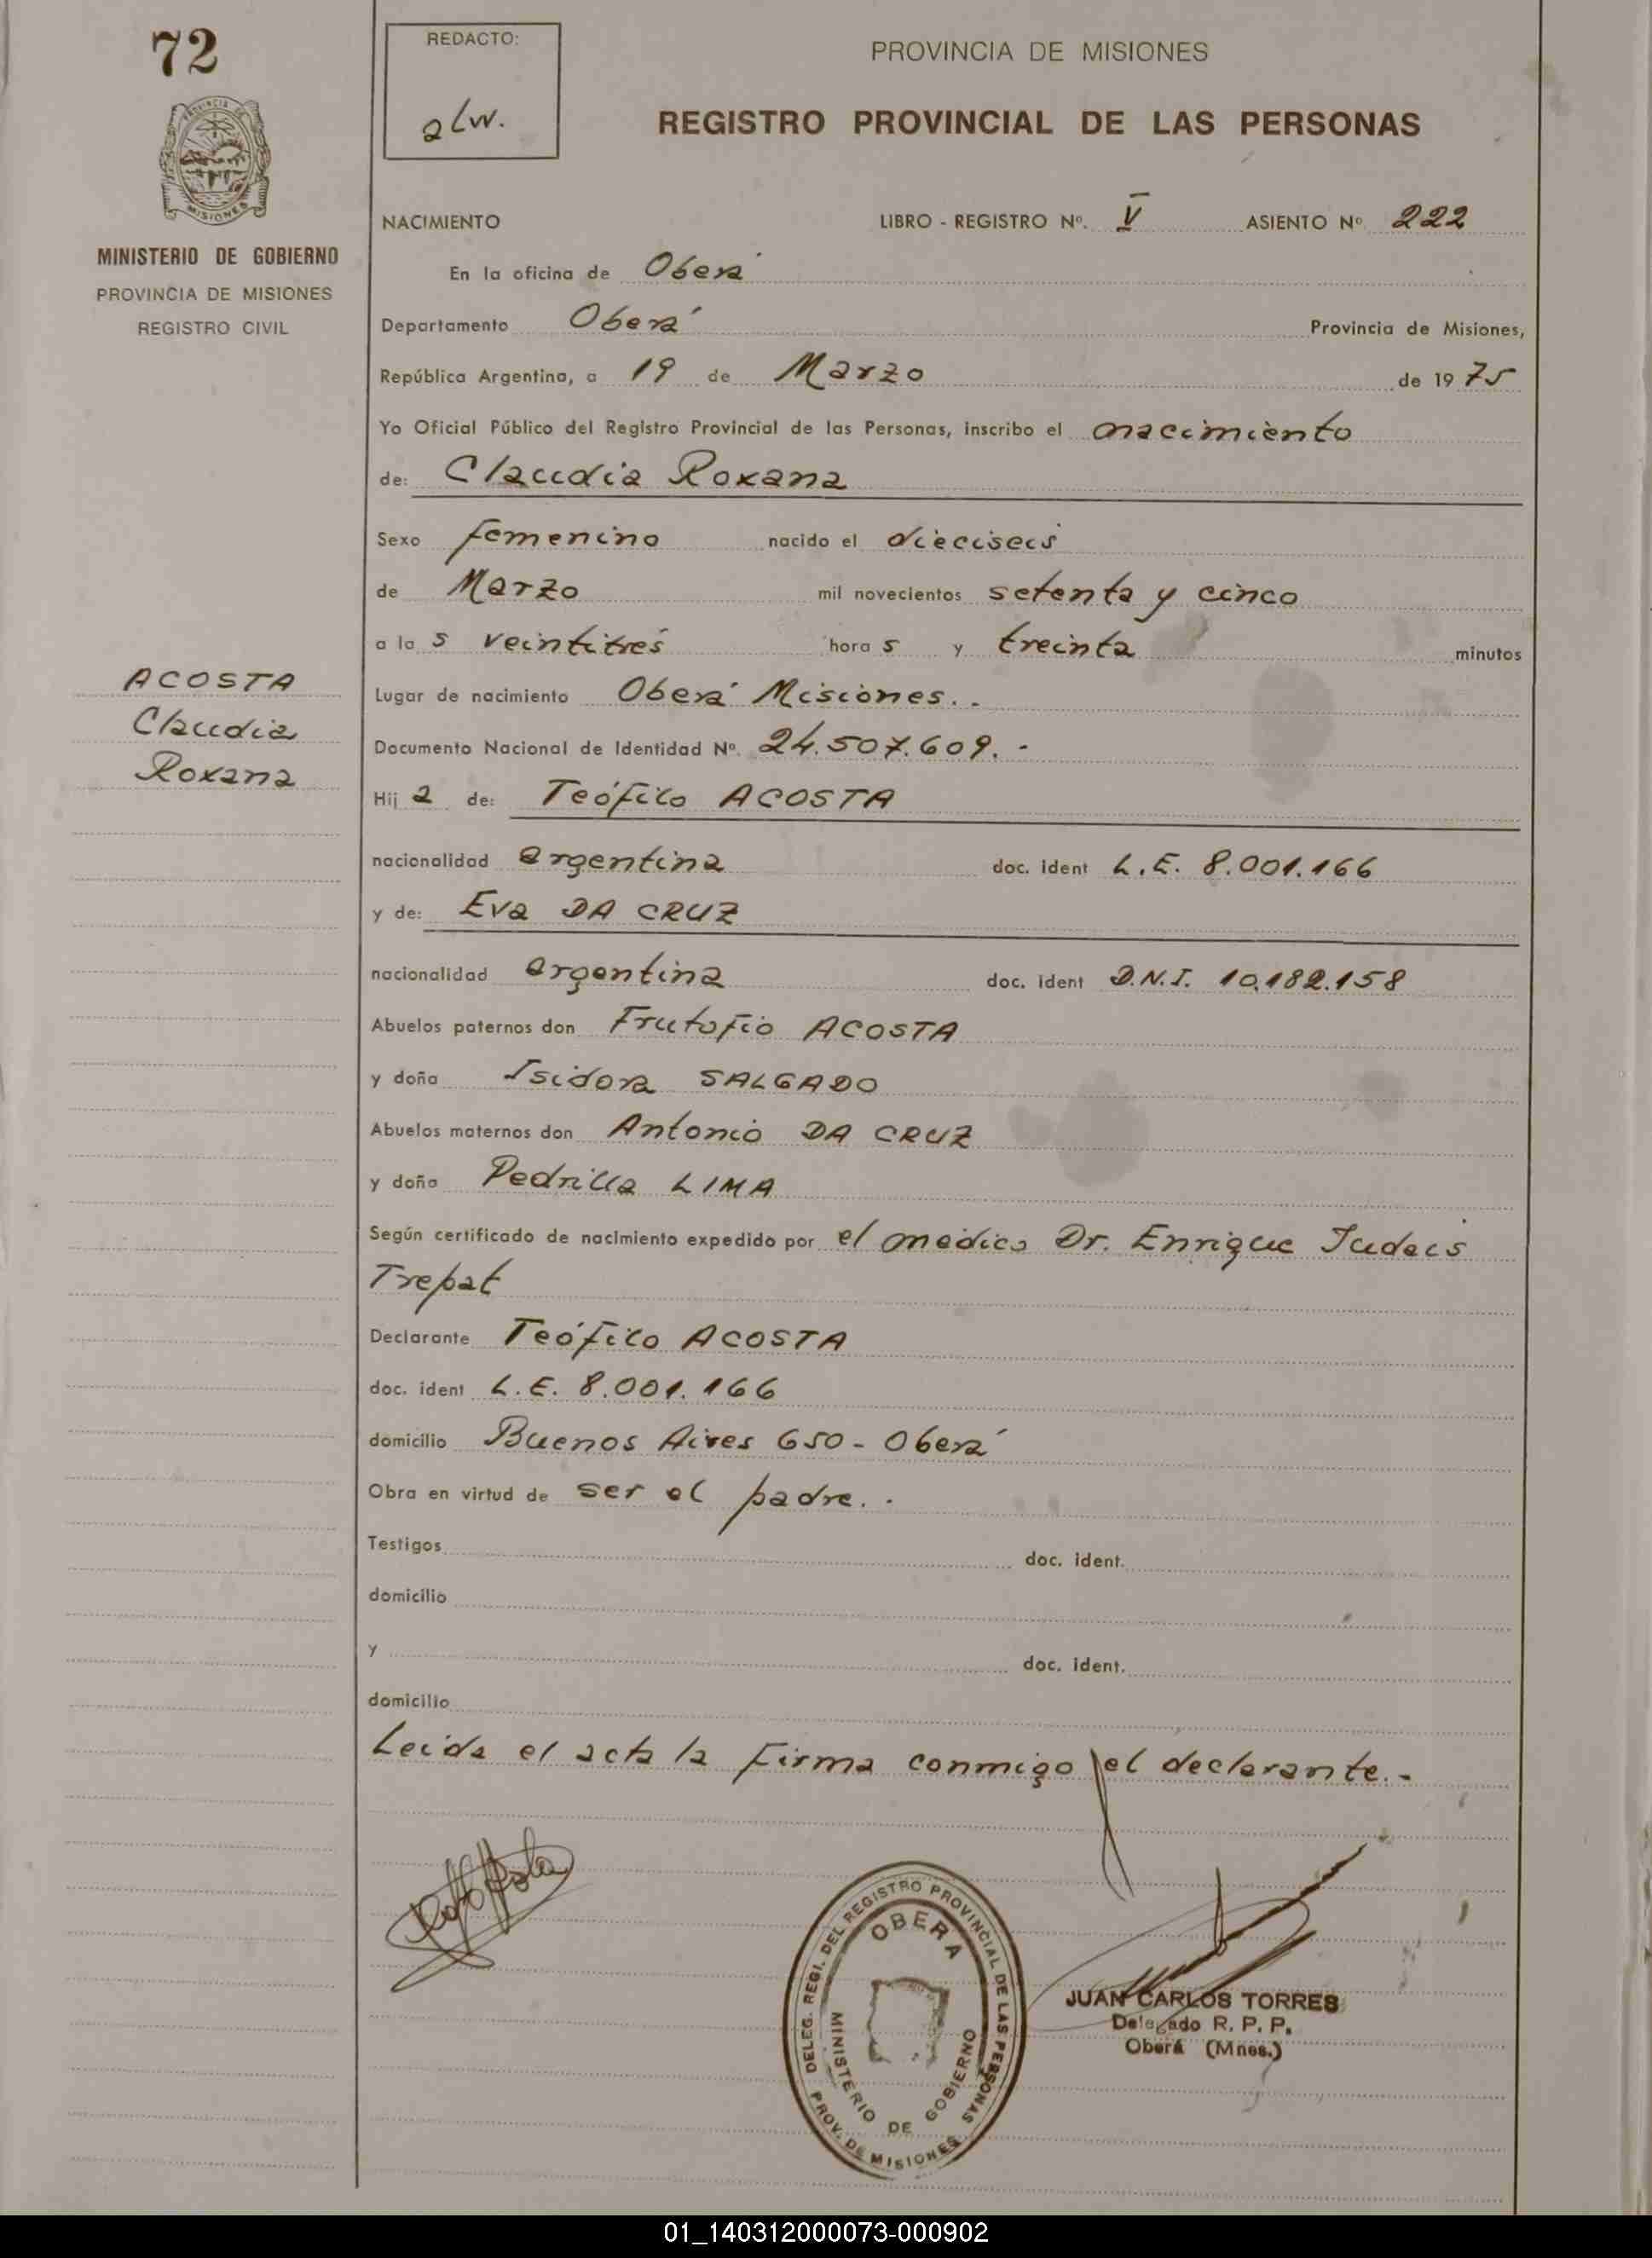 72
REDACTO:
alw.
PROVINCIA DE MISIONES
REGISTRO PROVINCIAL DE LAS PERSONAS
PROVINCIA DE
MISIONES
MINISTERIO DE GOBIERNO
PROVINCIA DE MISIONES
REGISTRO CIVIL
NACIMIENTO LIBRO - REGISTRO Nº. V ASIENTO Nº 222
En la oficina de Oberá
Departamento Oberá Provincia de Misiones,
República Argentina, a 19 de Marzo de 1975
Yo Oficial Público del Registro Provincial de las Personas, inscribo el nacimiento
de: Claudia Roxana
Sexo femenino nacido el dieciseis
de Marzo mil novecientos setenta y cinco
a las veintitrés horas y treinta minutos
ACOSTA
Claudia
Roxana
Lugar de nacimiento Oberá Misiones. -
Documento Nacional de Identidad Nº. 24.507.609. -
Hija de: Teófilo ACOSTA
nacionalidad argentina doc. ident L.E. 8.001.166
y de: Eva DA CRUZ
nacionalidad argentina doc. ident D.N.I. 10.182.158
Abuelos paternos don ACOSTA
y doña Isidora SALGADO
Abuelos maternos don Antonio DA CRUZ
y doña Pedrilla LIMA
Según certificado de nacimiento expedido por el médico Dr. Enrique Judais
Trepat
Declarante Teófilo ACOSTA
doc. ident L.E. 8.001.166
domicilio Buenos Aires 650 - Oberá
Obra en virtud de ser el padre. -
Testigos doc. ident.
domicilio
y doc. ident.
domicilio
Leida el acta la firma conmigo el declarante. -
DELEG. REGI. DEL REGISTRO PROVINCIAL DE LAS PERSONAS
OBERA
MINISTERIO DE GOBIERNO
PROV. DE MISIONES
JUAN CARLOS TORRES
Delegado R. P. P.
Oberá (Mnes.)
01_140312000073-000902